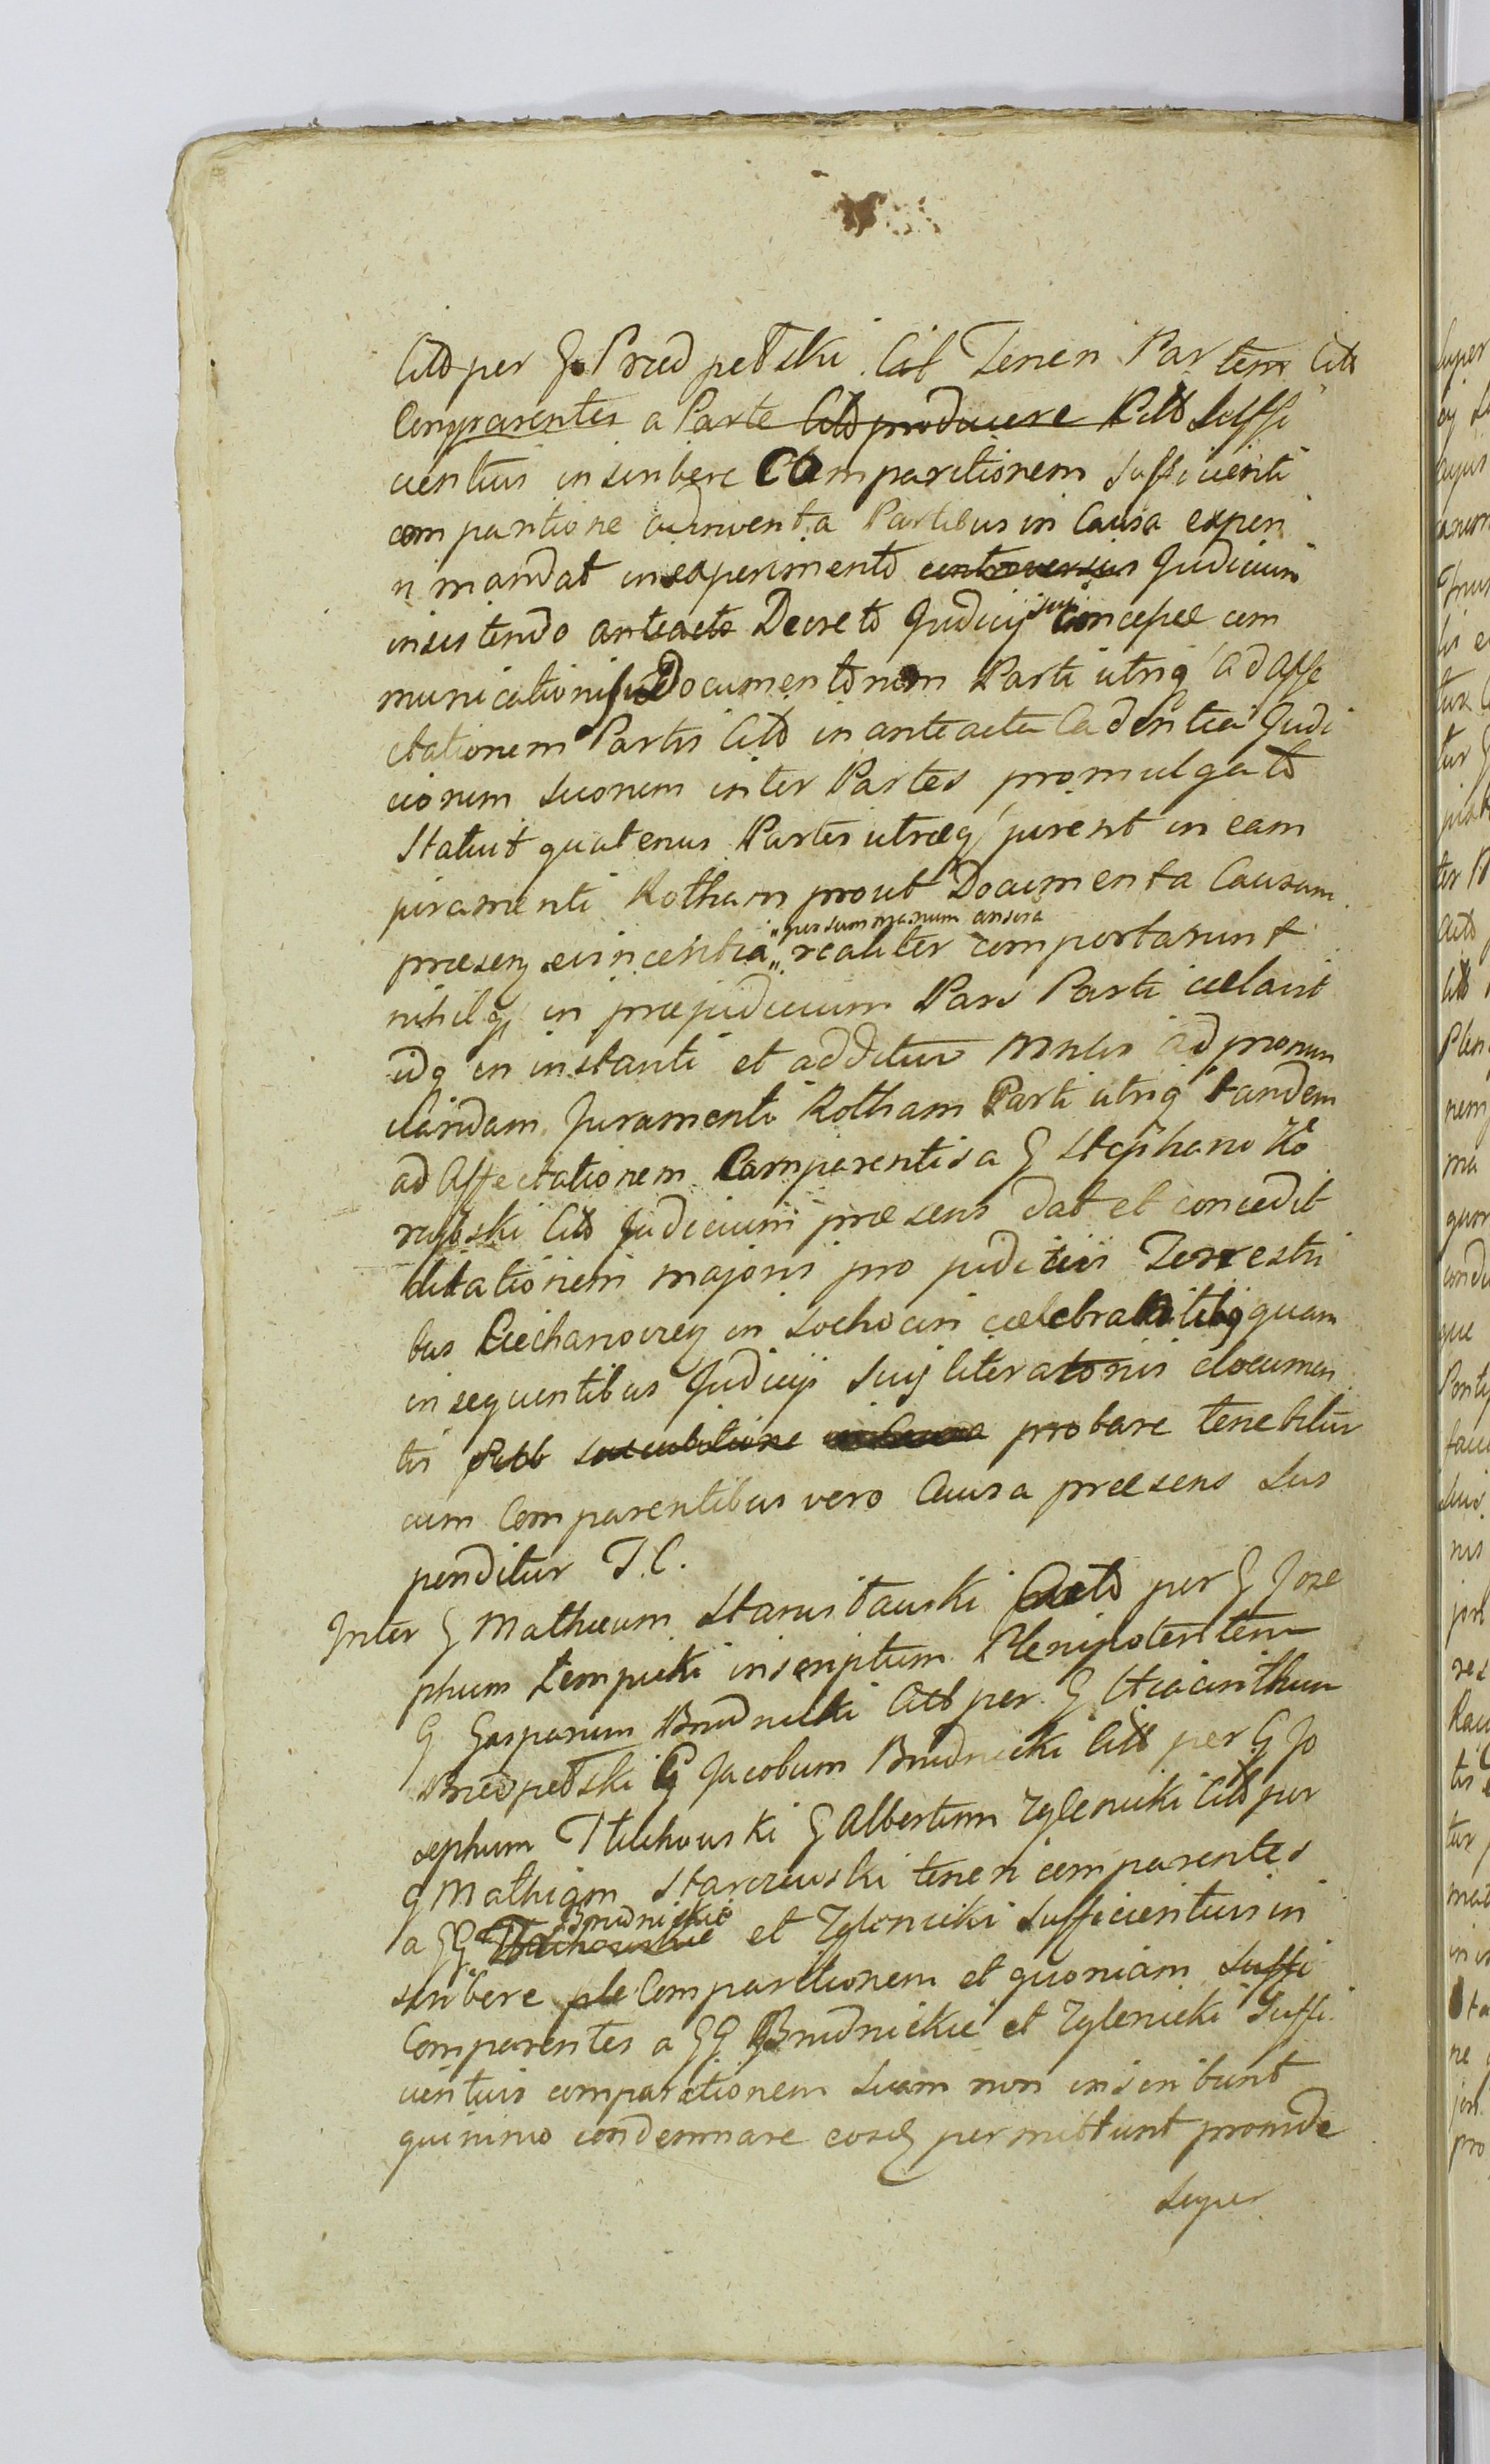 Citto per G. Przedpełski Cit Tenen Partem Citt
Comparentes a Parte Citto producere Citt Suffi
cientius inscribere Comparitionem sufficienti
comparitione adinventa Partibus in Causa experi
ri mandat in experimento controversiis Judicium
insistendo anteacto Decreto Judicij sui in cople com
municationis Documentorum Parti utriq ad affe
ctationem Partis Citto in anteacta Cadentia Judi
ciorum suorum inter Partes promulgato
Statuit quatenus Partes utraeq jurent in eam
juramenti Rotham prout Documenta Causam
praesen. evincentia „per summarum ansera„ realiter comportarunt
nihilq in praejudicium Pars Parti celavit
idq in instanti et additur Mnlis ad pronun
ciandam Juramenti Rotham Parti utriq tandem
ad Affectationem Comparentis a G Stephano Ko
rytski Citto Judicium praesens dat et concedit
dilationem majoris pro judiciis Terrestri
bus Ciechanovien in Sochocin celebrabilibq quam
in sequentibus Judicijs suis literatoriis documen
tis sub succubitione in Causa probare tenebitur
cum Comparentibus vero Causa praesens sus
penditur T. C.
Inter G Matheum Stanisławski Acto per G Jose
phum Lempicki inscriptum Plenipotentem
G Gasparum Brudnicki Citt per G Hiacinthum
Przedpełski G Jacobum Brudnicki Citt per G Jo
sephum Tłuchowski G Albertum Zglenicki Citt per
G Mathiam Starczewski tenen comparentes
a GG Tłuchowskie Brudnickie et Zglenicki sufficientius in
scribere ple Comparitionem et quoniam suffi
Comparentes a GG Brudnickie et Zglenicki Suffi
cientius comparitionem suam non inscribunt
quinimo condemnare eosq permittunt proinde
super